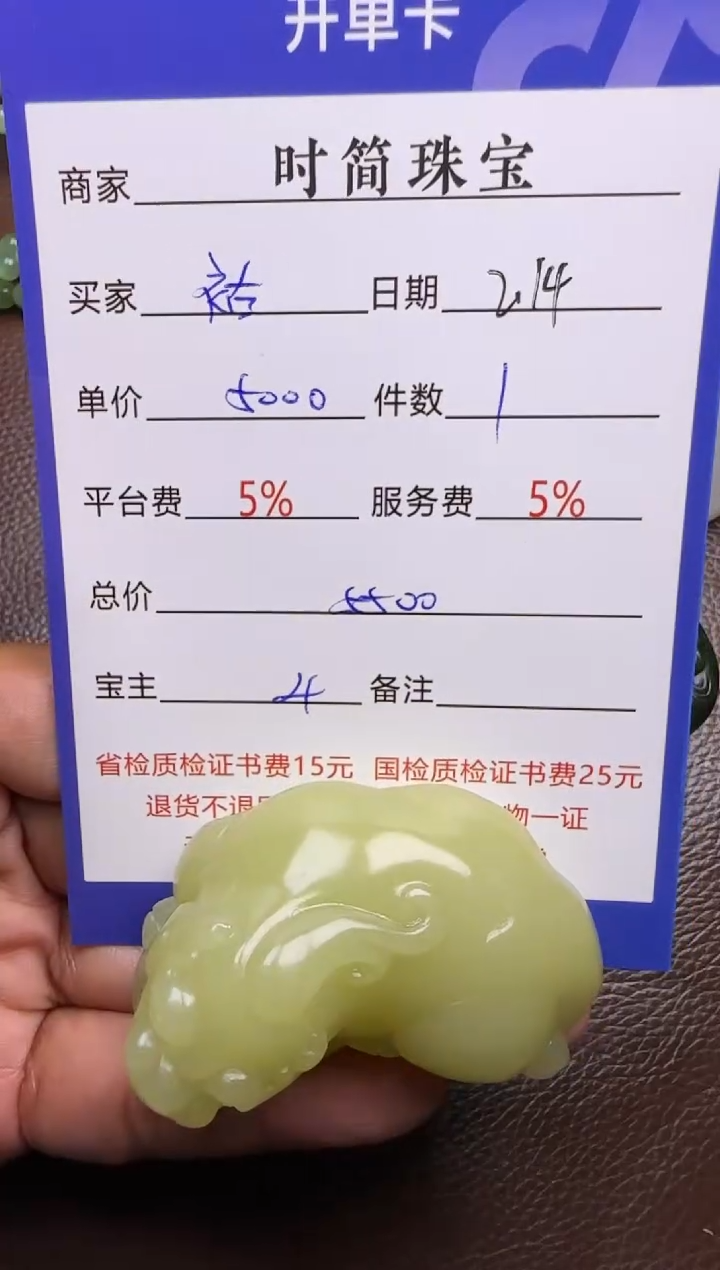 开单卡
商家 时简珠宝
买家 祐 日期 2.14
单价 5000 件数 1
平台费 5% 服务费 5%
总价 5500
宝主 4 备注
省检质检证书费15元 国检质检证书费25元
退货不退 物一证